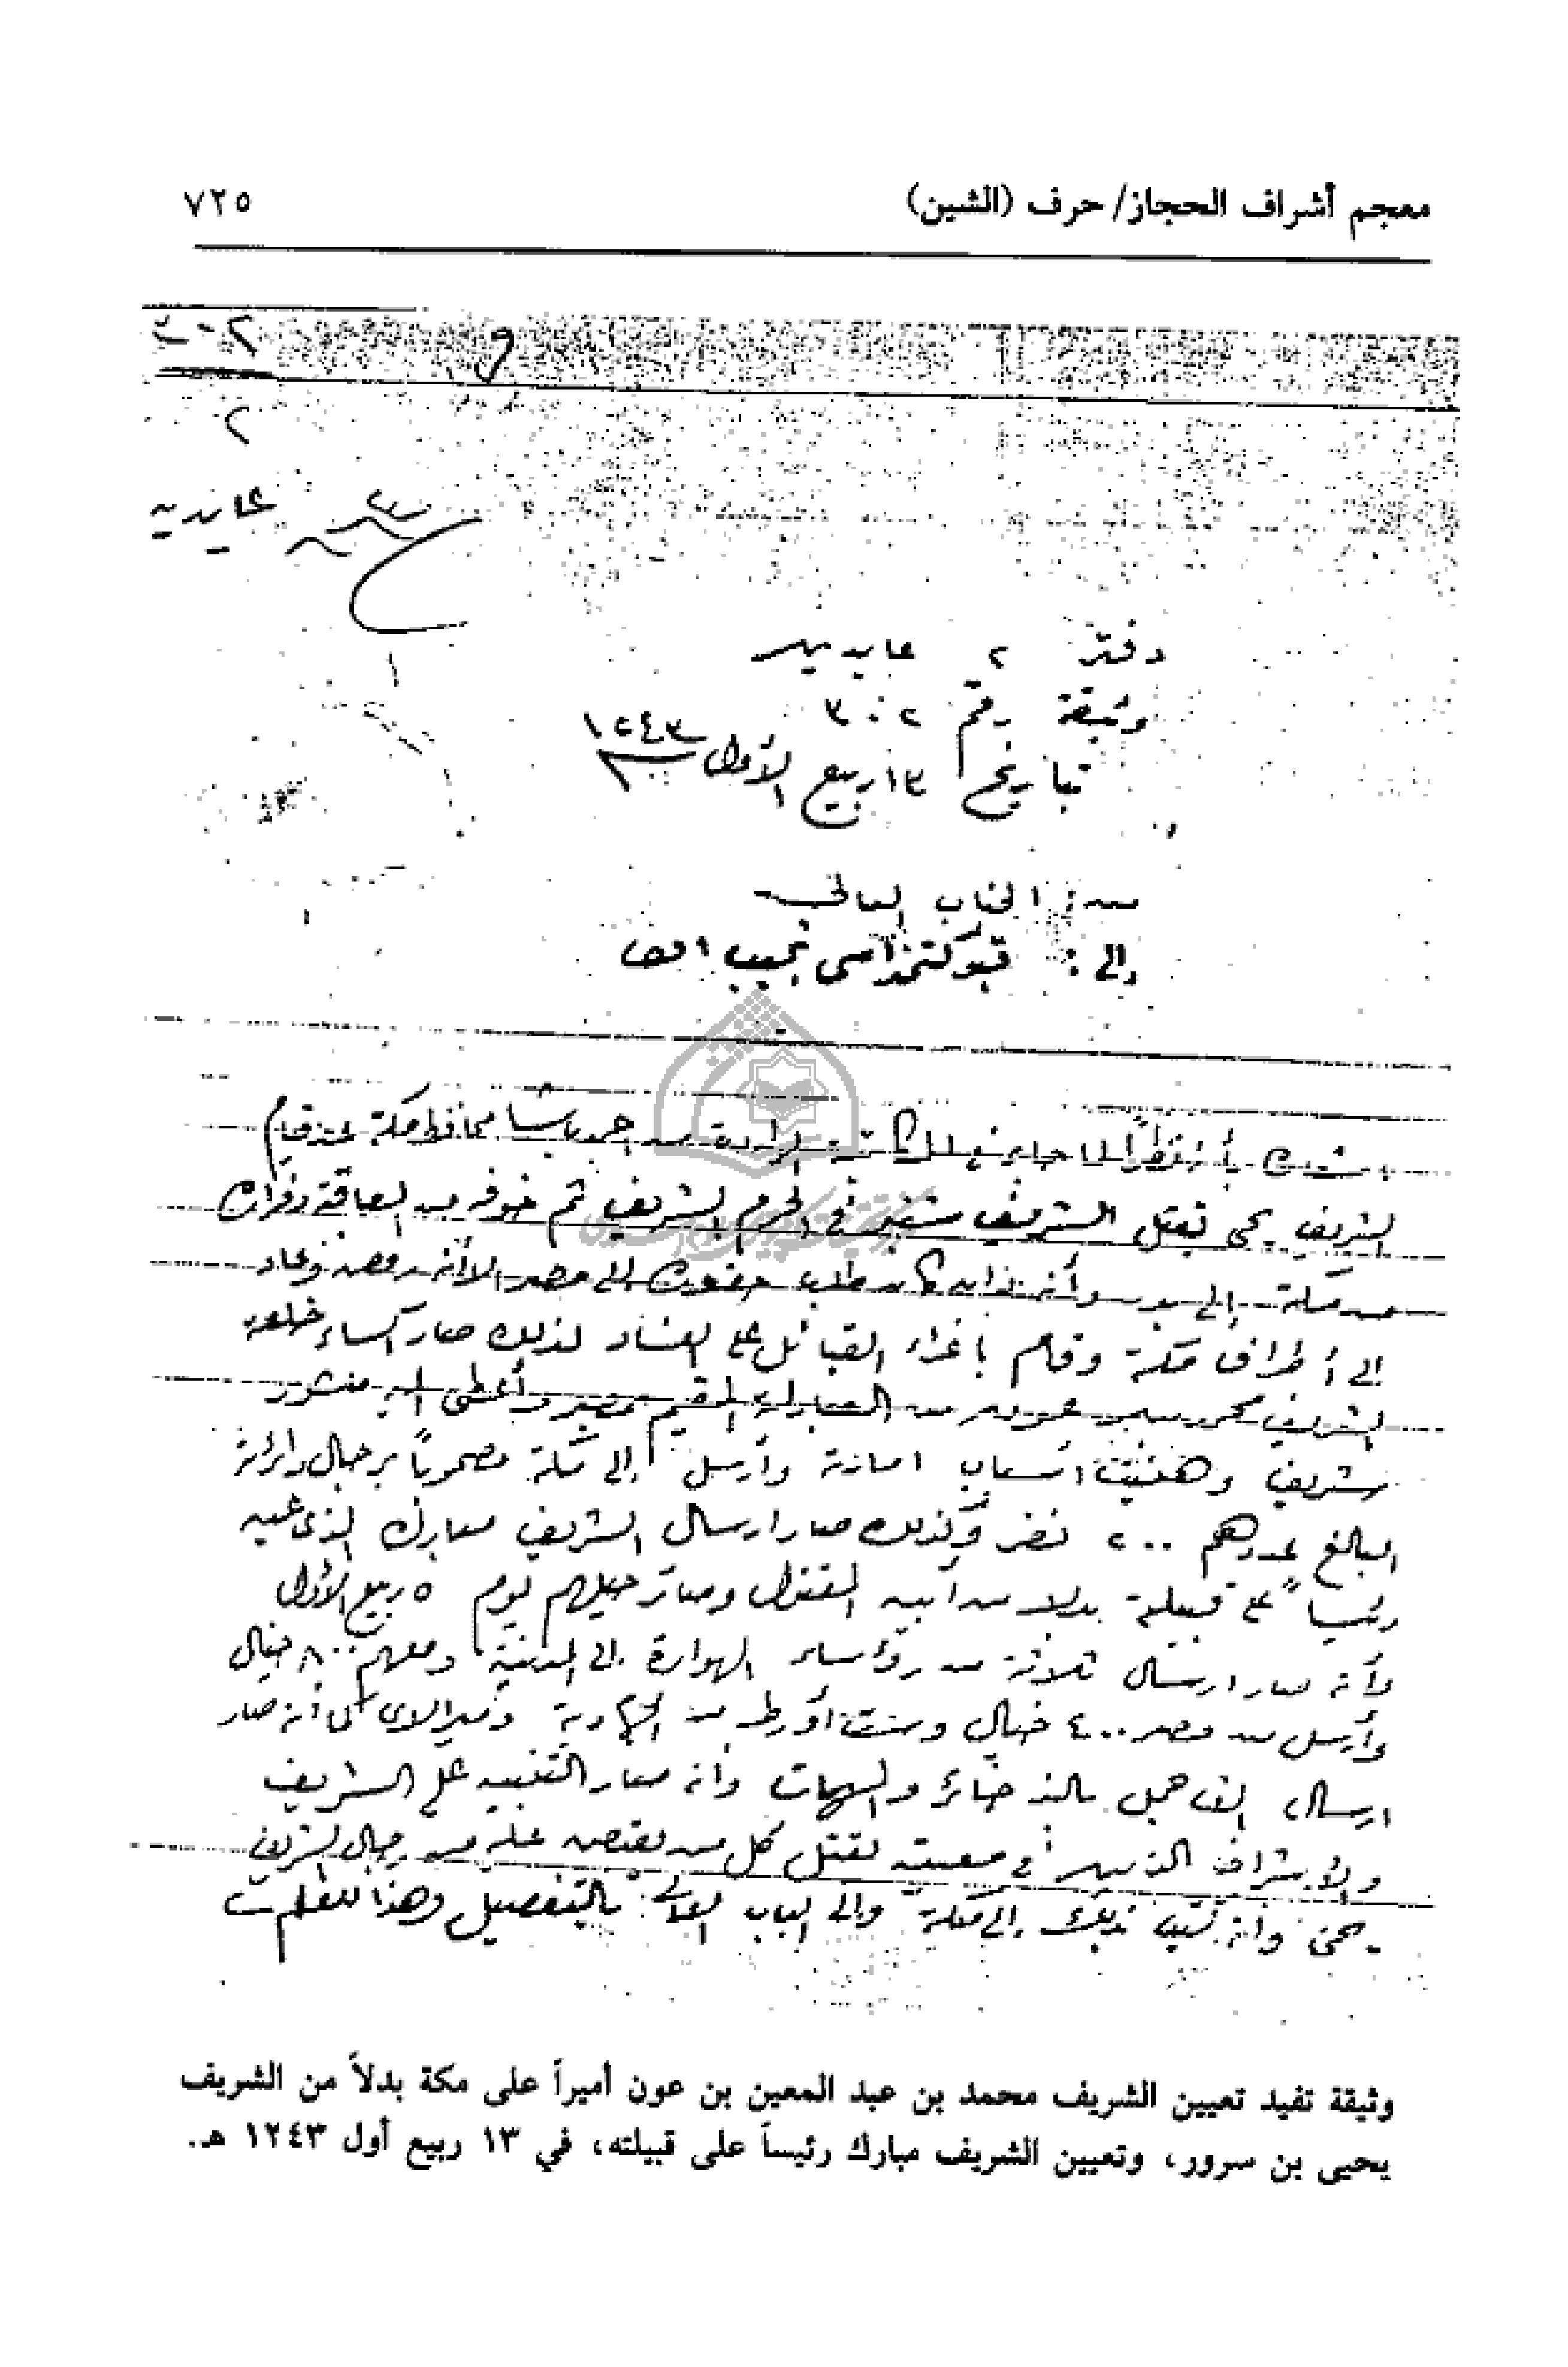 معجم أشراف الحجاز/ حرف (الشين)
٧٢٥
٣٠٢
٢
عابدين
دفتر ٢ عابدين
وثيقة رقم ٣٠٢
بتاريخ ١٣ ربيع الأول ١٢٤٣
من: الجناب العالي
إلى: قبوكتخداسى نجيب افندى
بأنه نظراً لما جاء في المكاتبة الواردة من احمد باشا محافظ مكة عند قيام
الشريف يحيى بقتل الشريف شنبر في الحرم الشريف ثم خوفه من العاقبة وفراره
من مكة إلى بدر وأنه كان طلب حضوره إلى مصر الا أنه رفض وعاد
إلى أطراف مكة وقام باغراء القبائل على الفساد لذلك صار اكساء خلعة
الشريف محمد بن عون من العبادلة المقيم بمصر وأعطى اليه منشور
شريف وهيئت أسباب امارته وأرسل إلى مكة مصحوباً برجال دائرته
البالغ عددهم ٢٠٠ نفر وكذلك صار ارسال الشريف مبارك الذى عين
رئيساً على قبيلته بدلا من أبيه المقتول وصار ترحيلهم يوم ٥ ربيع الأول
وأنه صار ارسال ثلاثة من رؤساء الهوارة إلى المدينة ومعهم ٨٠٠ خيال
وأرسل من مصر ٤٠٠ خيال وستة أورط من الجهادية وميرالاى كما أنه صار
ارسال الف جمل بالذخائر والمهمات وأنه صار التنبيه على الشريف
والاشراف الذين في معيته بقتل كل من يقبض عليه من رجال الشريف
يحيى وأنه كتب بذلك إلى مكة وإلى الباب العالي بالتفصيل وهذا للعلم
وثيقة تفيد تعيين الشريف محمد بن عبد المعين بن عون أميراً على مكة بدلاً من الشريف
يحيى بن سرور، وتعيين الشريف مبارك رئيساً على قبيلته، في ١٣ ربيع أول ١٢٤٣ هـ.